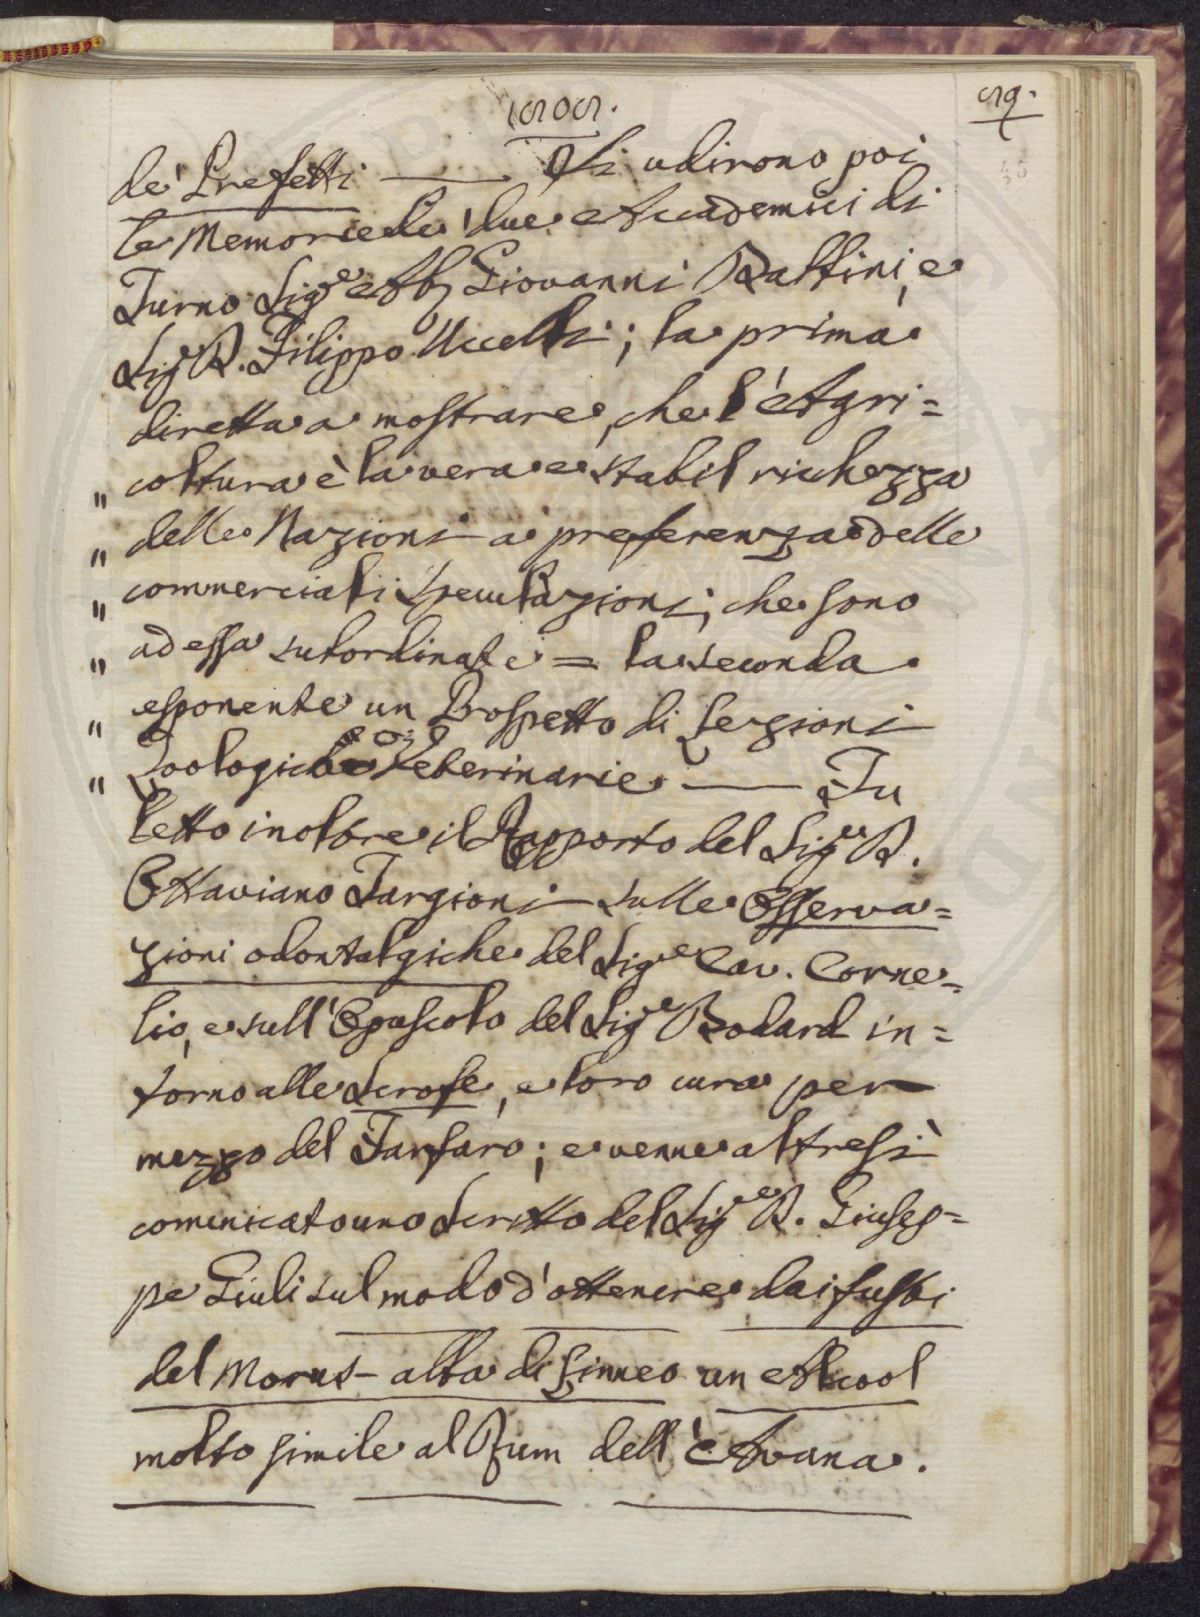 59.
de' Prefetti ——. Si udirono poi
le Memorie de' due Accademici di
Turno Sig.e Ab. Giovanni Battini, e
Sig.e D. Filippo Uccelli; la prima
diretta a mostrare, che l'Agri=
" coltura è la vera e stabil richezza
" delle Nazioni a preferenza delle
" commerciali speculazioni, che sono
" ad essa subordinate = la seconda
" esponente un Prospetto di Lezioni
" Zoologiche Veterinarie —— Fu
letto inoltre il Rapporto del Sig.e D.
Ottaviano Targioni sulle Osserva=
zioni odontalgiche del Sig.e Cav. Corne=
lio, e sull'Opuscolo del Sig.e Bodard in=
torno alle Scrofe, e loro cura per
mezzo del Farfaro; e venne altresì
comunicato uno Scritto del Sig.e D. Giusep=
pe Giuli sul modo d'ottenere dai frutti
del Morus-alba di Linneo un Alcool
molto simile al Rum dell'Avana.